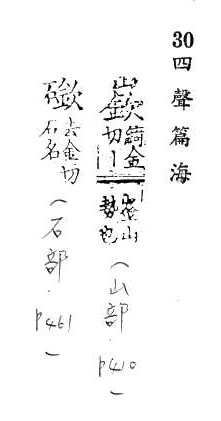 30 四聲篇海
嶔 金切 山勢也 (山部 · p410)
去金切 石名 (石部 · p461)